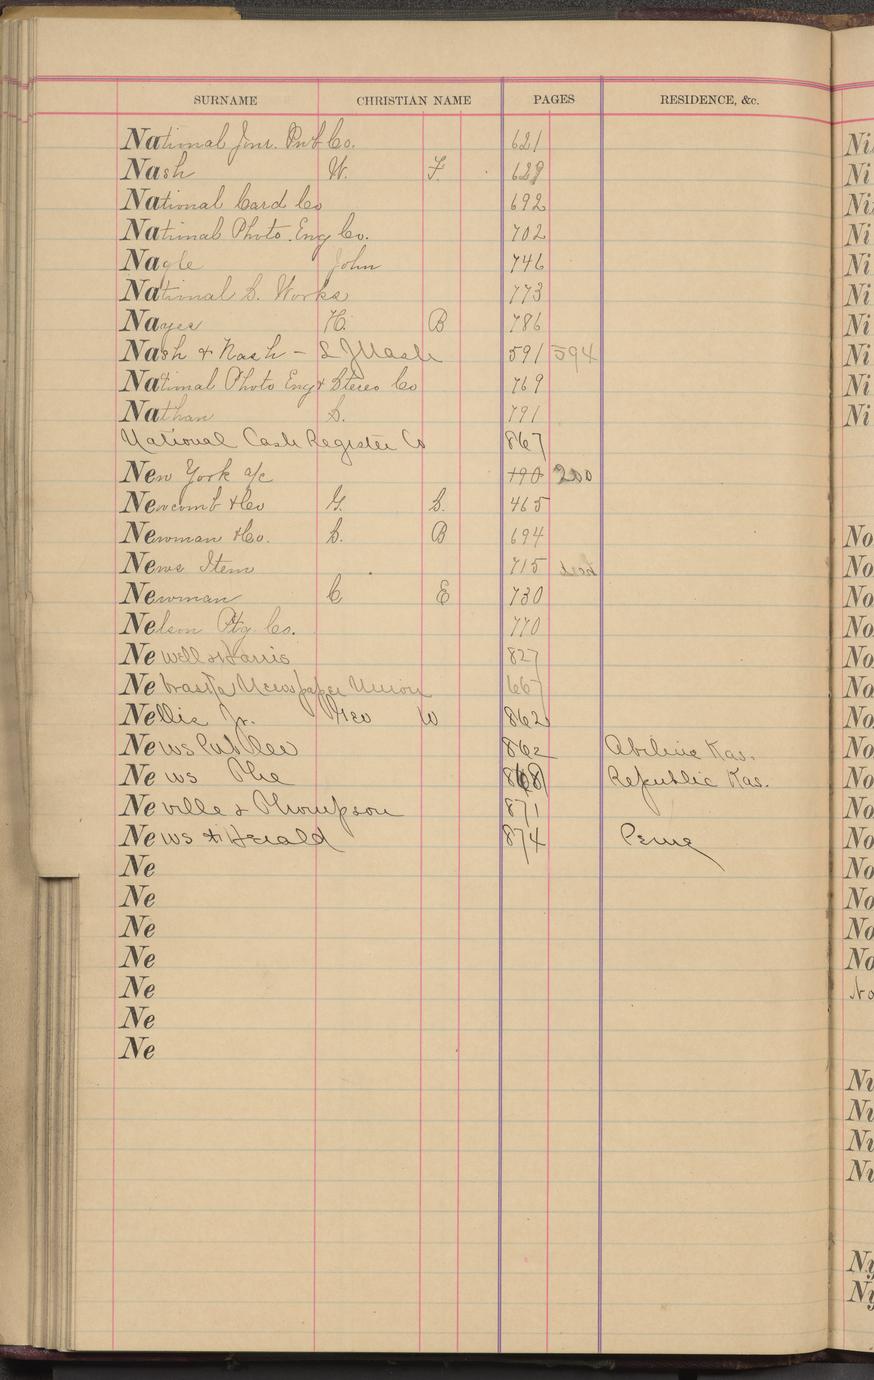 SURNAME CHRISTIAN NAME PAGES RESIDENCE, &c.
National Jour. Pub Co. 621
Nash W. F. 628
National Card Co 692
National Photo. Eng Co. 702
Nagle John 746
National S. Works 773
Nayes H. B 786
Nash & Nash - L J Nash 591 594
National Photo Eng & Stereo Co 769
Nathan S. 791
National Cash Register Co 867
New York a/c 190 200
Newcomb & Co G. S. 465
Newman & Co. S. B 694
News Item 715 dead
Newman C E 730
Nelson Ptg. Co. 770
Newell & Harris 827
Nebraska Newspaper Union 667
Nellie Jr. Geo W 862
News Pub Co 862 Abilene Kas.
News The 868 Republic Kas.
Neville & Thompson 871
News & Herald 874
Ne
Ne
Ne
Ne
Ne
Ne
Ne
Ni
Ni
Ni
Ni
Ni
Ni
Ni
Ni
Ni
Ni
No
No
No
No
No
No
No
No
No
No
No
No
No
No
No
No
Nu
Nu
Nu
Nu
Ny
Ny